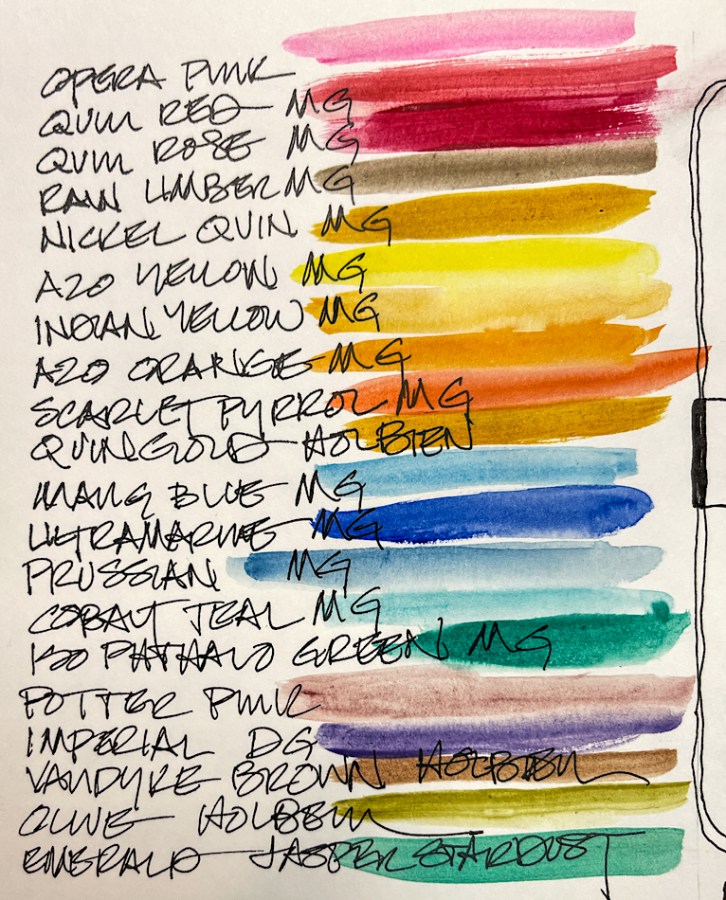 OPERA PINK
QUIN RED MG
QUIN ROSE MG
RAW UMBER MG
NICKEL QUIN MG
AZO YELLOW MG
INDIAN YELLOW MG
AZO ORANGE MG
SCARLET PYRROL MG
QUIN GOLD HOLBIEN
MANG BLUE MG
ULTRAMARINE MG
PRUSSIAN MG
COBALT TEAL MG
ISO PHTHALO GREEN MG
POTTER PINK
IMPERIAL DG
VANDYKE BROWN HOLBEIN
OLIVE HOLBEIN
EMERALD JASPER STARDUST